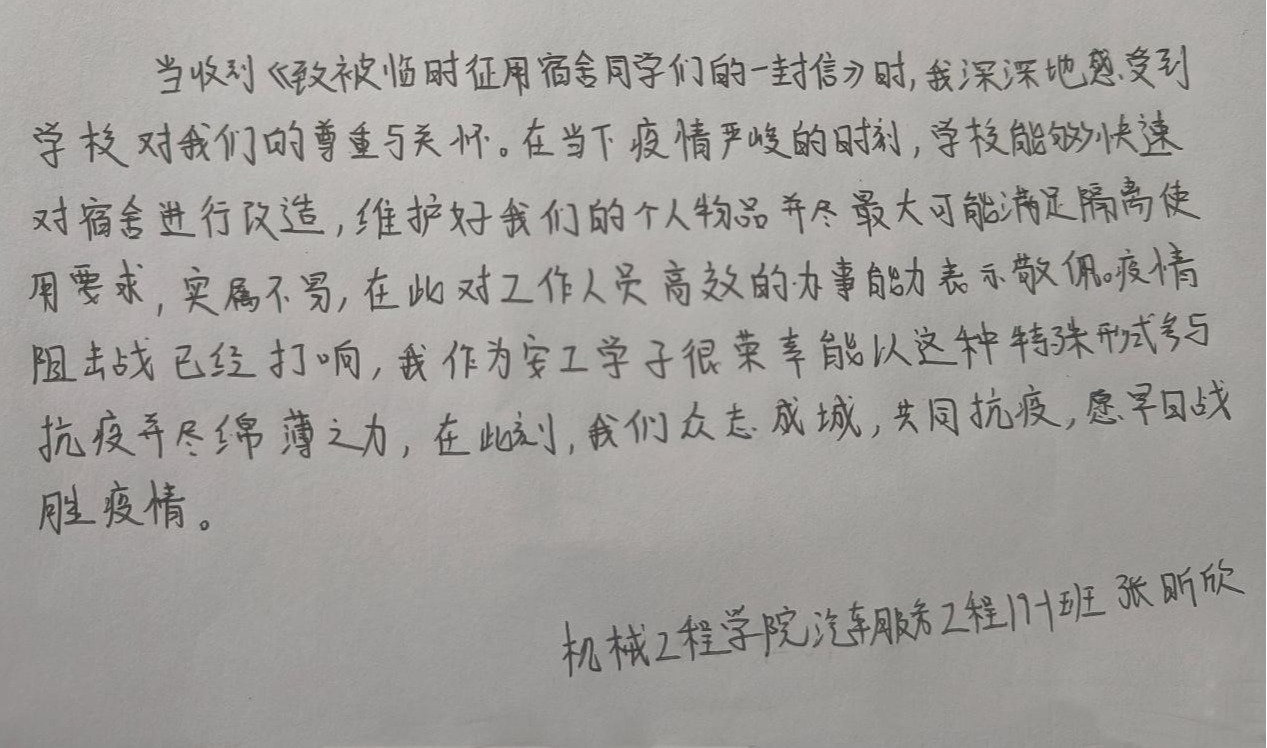 当收到《致被临时征用宿舍同学们的一封信》时,我深深地感受到
学校对我们的尊重与关怀。在当下疫情严峻的时刻,学校能够快速
对宿舍进行改造,维护好我们的个人物品并尽最大可能满足隔离使
用要求,实属不易,在此对工作人员高效的办事能力表示敬佩。疫情
阻击战已经打响,我作为安工学子很荣幸能以这种特殊形式参与
抗疫并尽绵薄之力,在此刻,我们众志成城,共同抗疫,愿早日战
胜疫情。
机械工程学院汽车服务工程19-1班 张昕欣